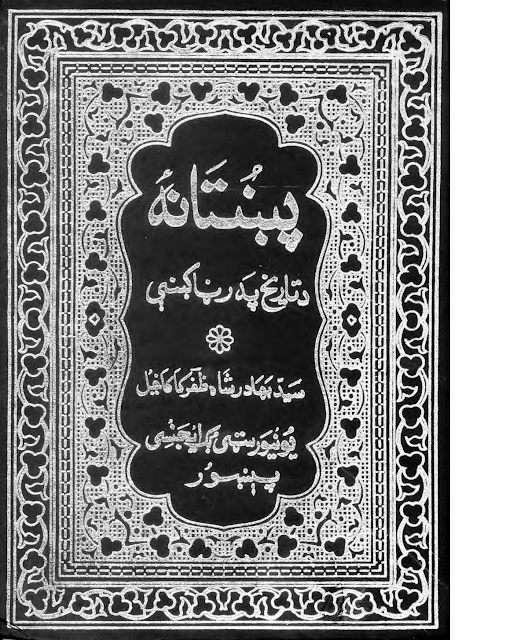 پښتانهٔ
د تاریخ په رڼا کښې
سید بهادر شاه ظفر کاکاخیل
یونیورسټی بک ایجنسی
پېښور